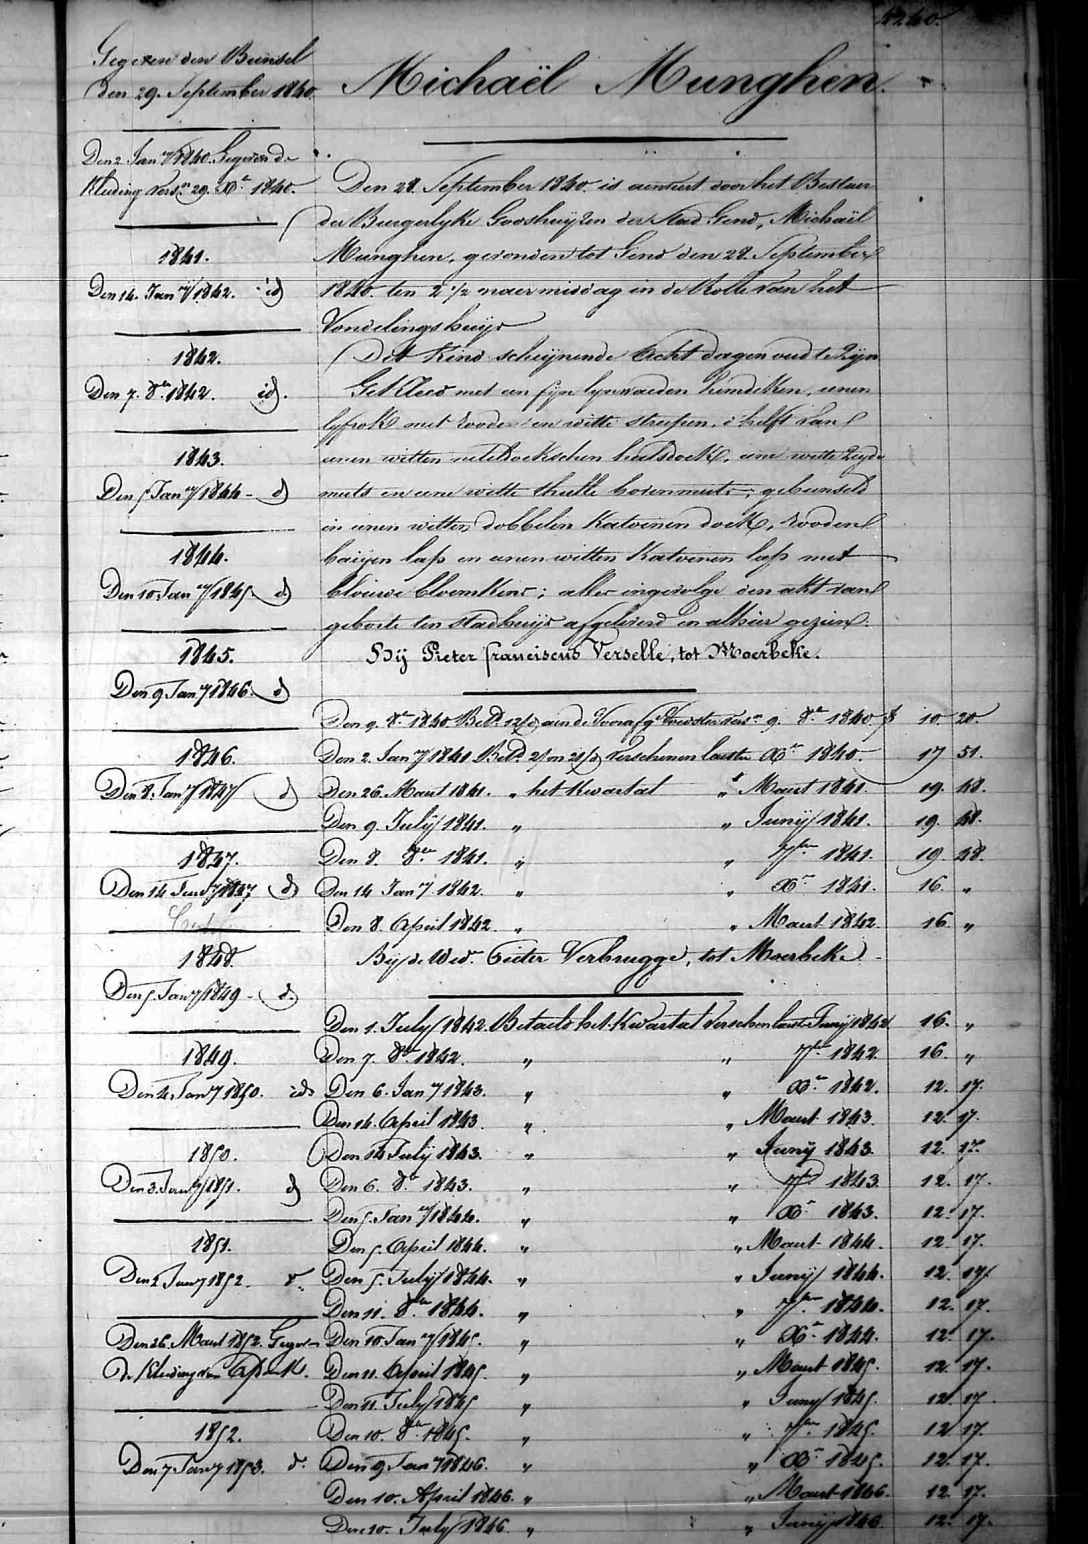 4240.
Gegeven den Bunsel
den 29. September 1840.
Michaël Munghen.
Den 2 Jan.ry 1840. Gegeven de
Kleeding vers.n 29. X.r 1840.
1841.
Den 14. Jan.ry 1842. id
1842.
Den 7. 8.r 1842. id.
1843.
Den 5 Jan.ry 1844 - d
1844.
Den 10 Jan.ry 1845. d
1845.
Den 9 Jan.ry 1846. d
1846.
Den 8. Jan.ry 1847 d
1847.
Den 14 1847 d
1848.
Den 5. Jan.ry 1849 - d.
1849.
Den 4. Jan.ry 1850. id
1850.
Den 3. Jan.ry 1851. d
1851.
Den 2 Jan.ry 1852. d.
Den 26. Maert 1852. Gegeven
de Kleeding van
1852.
Den 7 Jan.ry 1853. d.
Den 28. September 1840. is aenveert door het Bestuer
der Burgerlyke Godshuyzen der Stad Gend, Michaël
Munghen, gevonden tot Gend den 28. September
1840. ten 2 1/2 naer middag in de Rolle van het
Vondelingshuys
Dit Kind schynende Acht dagen oud te zyn
Gekleed met een fyn lynwaeden hemdeken, eenen
lyfrok met rooden en witte streepen, d'helft van
eenen witten neteldoekschen halsdoek, eene witte Zyde
muts en eene witte thulle bovenmuts; gebunseld
in eenen witten dobbelen Katoenen doek, rooden
baeijen lap en eenen witten Katoenen lap met
blouwe bloemkens; alles ingevolge den akt van
geboorte ten stadhuys afgeleverd en alhier gezien.
Bij Pieter franciscus Verselle, tot Moerbeke.
Den 9. 8.r 1840 Bet.d 12/d aen de Voedster vers.n 9. 8.r 1840 f 10. 20.
Den 2. Jan.ry 1841 Bet.d 2/m 21/d Verschenen laesten X.r 1840. 17 51.
Den 26. Maert 1841. „ het Kwartael „ Maert 1841. 19. 48.
Den 9. July 1841. „ „ Junij 1841. 19. 48.
Den 8. 8.ber 1841. „ „ 7.ber 1841. 19. 48.
Den 14 Jan.ry 1842. „ „ X.r 1841. 16. „
Den 8. April 1842. „ „ Maert 1842. 16 „
Bij de Wed.e Pieter Verbrugge, tot Moerbeke.
Den 1. July 1842. Betaeld het Kwartael Verschen laest Junij 1842 16. „
Den 7. 8.r 1842. „ „ 7.ber 1842. 16. „
Den 6. Jan.ry 1843. „ „ X.r 1842. 12. 17.
Den 14. April 1843. „ „ Maert 1843. 12. 17.
Den 14 July 1843. „ „ Junij 1843. 12. 17.
Den 6. 8.r 1843. „ „ 7.ber 1843. 12. 17.
Den 5. Jan.ry 1844. „ „ X.r 1843. 12. 17.
Den 5. April 1844. „ „ Maert 1844. 12. 17.
Den 5. July 1844. „ „ Junij 1844. 12. 17.
Den 11. 8.r 1844. „ „ 7.ber 1844. 12. 17.
Den 10. Jan.ry 1845. „ „ X.r 1844. 12. 17.
Den 11. April 1845. „ „ Maert 1845. 12. 17.
Den 11. July 1845 „ „ Juny 1845. 12. 17.
Den 10. 8.r 1845. „ „ 7.ber 1845. 12 17.
Den 9 Jan.ry 1846. „ „ X.r 1845. 12. 17.
Den 10. April 1846. „ „ Maert 1846. 12. 17.
Den 10. July 1846. „ „ Junij 1846. 12. 17.